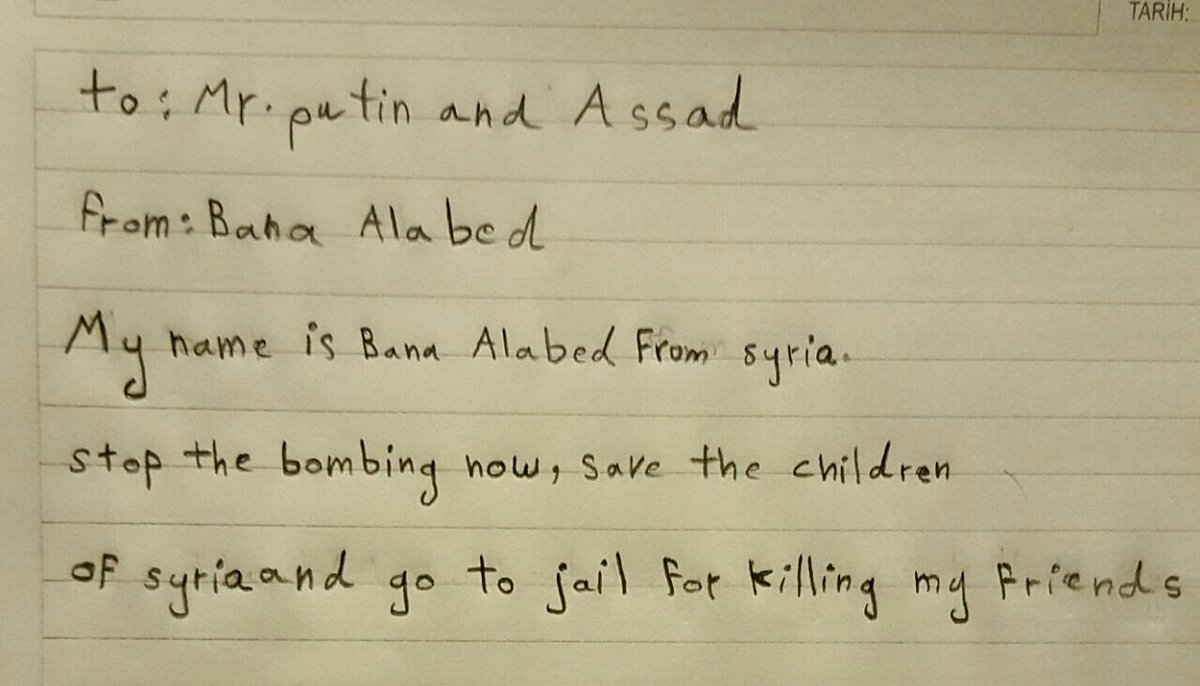 TARİH:
to: Mr. putin and Assad
from: Bana Alabed
My name is Bana Alabed From syria.
stop the bombing now, save the children
of syria and go to jail for killing my friends